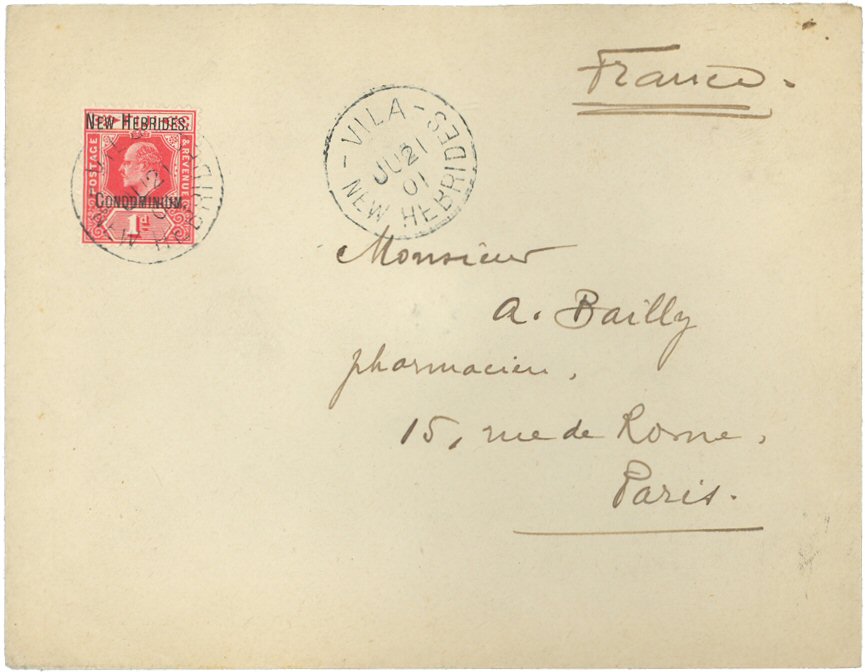 France.
NEW HEBRIDES.
POSTAGE & REVENUE
CONDOMINIUM.
1d
- VILA -
JU 21
01
NEW HEBRIDES
Monsieur
A. Bailly
pharmacien,
15, rue de Rome,
Paris.